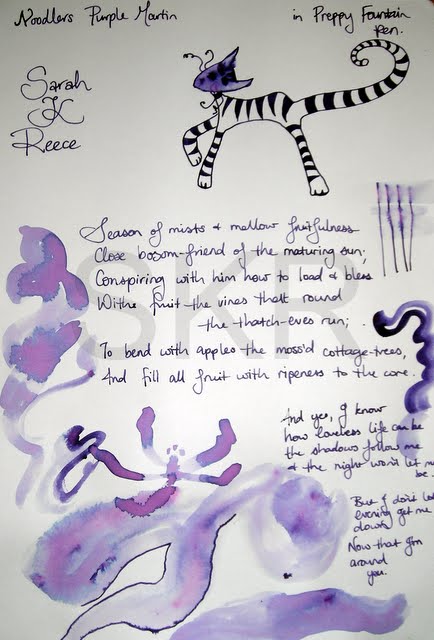 Noodlers Purple Martin
in Preppy Fountain
Pen.
Sarah
K
Reece
Season of mists & mellow fruitfulness
Close bosom-friend of the maturing sun;
Conspiring with him how to load & bless
Withe fruit the vines that round
the thatch-eves run;
To bend with apples the moss'd cottage-trees,
And fill all fruit with ripeness to the core.
And yes, I know
how loveless life can be
the shadows follow me
& the night won't let me
be.
But I don't let
evening get me
down
Now that
around
you.
SKR